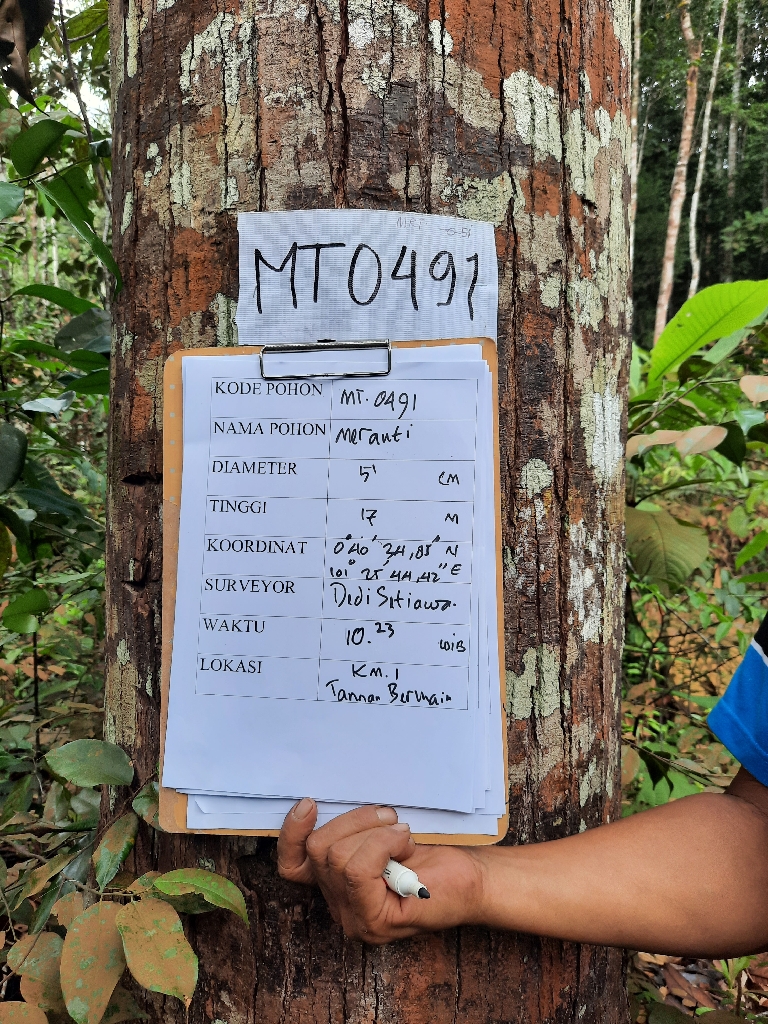 MT0491
KODE POHON MT. 0491
NAMA POHON Meranti
DIAMETER 51 CM
TINGGI 17 M
KOORDINAT 0° 40' 34,05" N
101° 25' 44,42" E
SURVEYOR Didi Setiawa.
WAKTU 10.23 WIB
LOKASI KM. 1
Taman Bermain